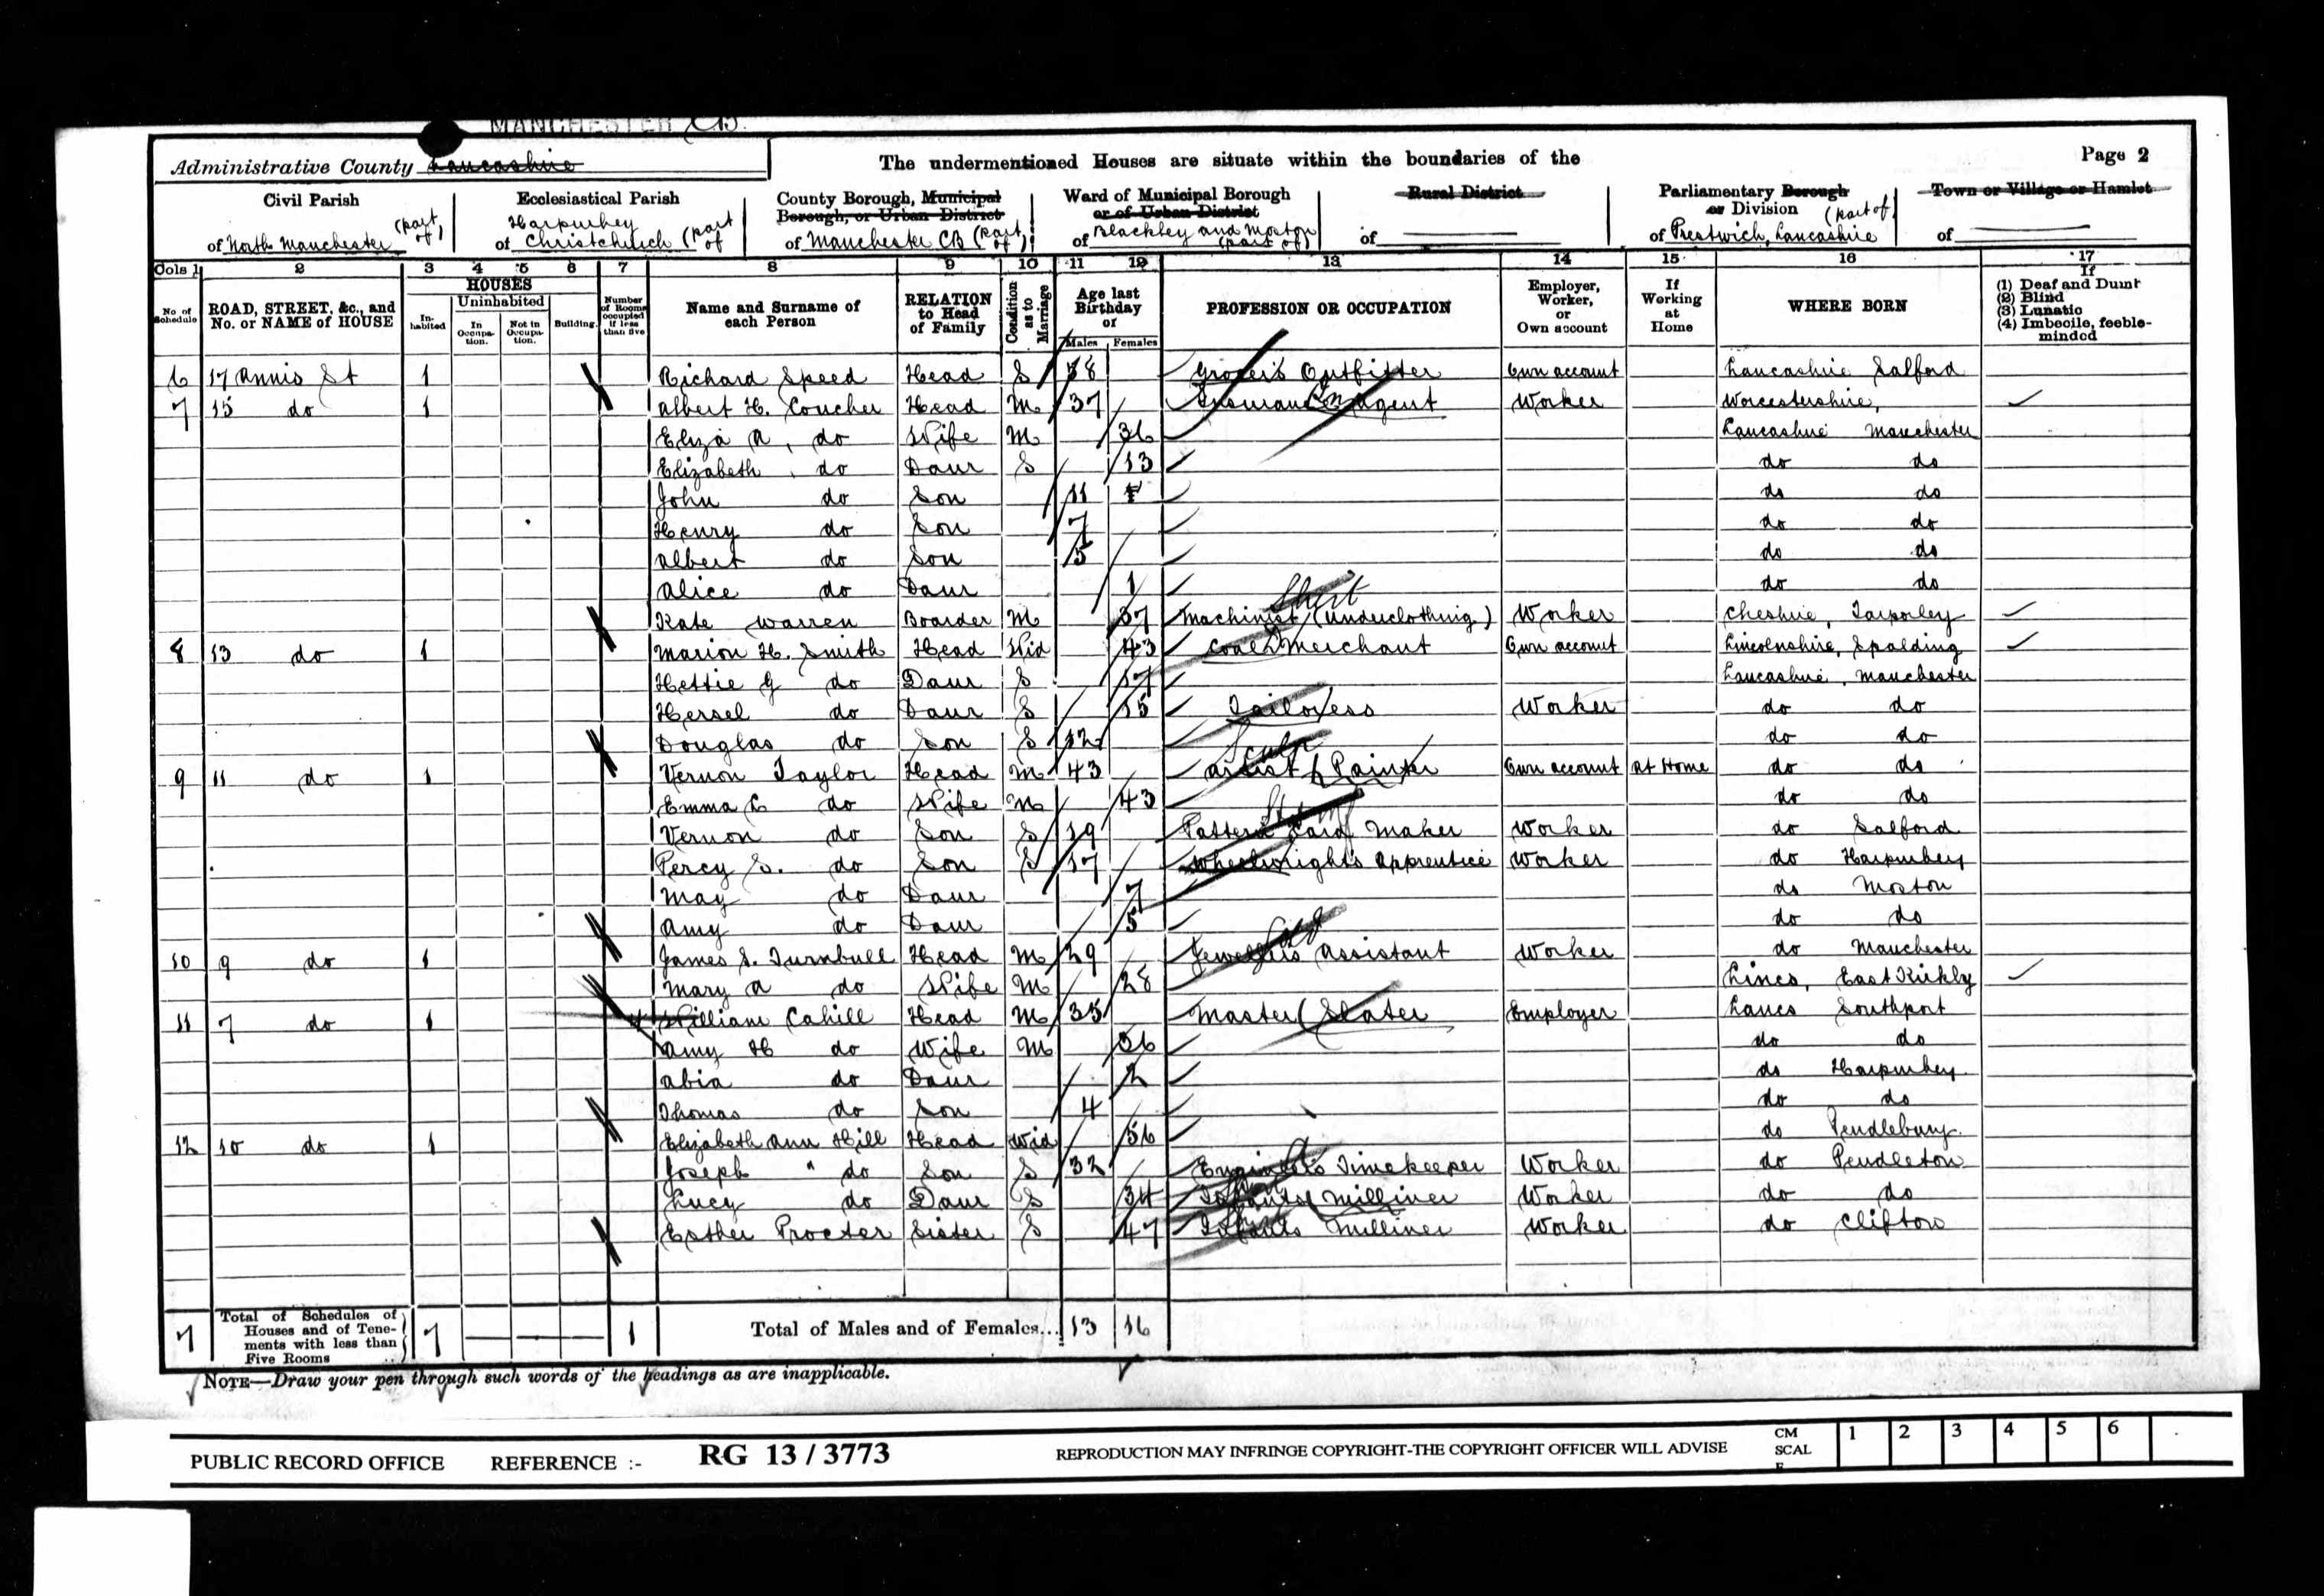 MANCHESTER CB.
Administrative County Lancashire The undermentioned Houses are situate within the boundaries of the Page 2
Civil Parish Ecclesiastical Parish County Borough, Municipal Borough, or Urban District Ward of Municipal Borough or of Urban District Rural District Parliamentary Borough or Division Town or Village or Hamlet
of North Manchester (part of) of Harpurhey Christchurch (part of of Manchester CB (part of) of Blackley and Moston (part of) of of Prestwich, Lancashire (part of of
Cols 1 2 3 4 5 6 7 8 9 10 11 12 13 14 15 16 17
No of Schedule ROAD, STREET, &c., and No. or NAME of HOUSE HOUSES In-habited Uninhabited In Occupa-tion. Not in Occupa-tion. Building. Number of Rooms occupied if less than five Name and Surname of each Person RELATION to Head of Family Condition as to Marriage Age last Birthday of Males Females PROFESSION OR OCCUPATION Employer, Worker, or Own account If Working at Home WHERE BORN If (1) Deaf and Dumb (2) Blind (3) Lunatic (4) Imbecile, feeble-minded
6 17 Annis St 1 Richard Speed Head S 38 Grocer's Outfitter Own account Lancashire Salford
7 15 do 1 Albert H. Coucher Head M 37 Insurance Agent Worker Worcestershire,
Eliza A, do Wife M 36 Lancashire Manchester
Elizabeth do Daur S 13 do do
John do Son 11 do do
Henry do Son 7 do do
Albert do Son 5 do do
Alice do Daur 1 do do
Kate Warren Boarder M 37 Machinist (Underclothing) Shirt Worker Cheshire, Tarporley
8 13 do 1 Marion H. Smith Head Wid 43 Coal Merchant Own account Lincolnshire, Spalding
Hettie G do Daur S 17 Lancashire, Manchester
Hersel do Daur S 15 Tailoress Worker do do
Douglas do Son S 12 do do
9 11 do 1 Vernon Taylor Head M 43 Artist Painter Sculp Own account At Home do do
Emma L do Wife M 43 do do
Vernon do Son S 19 Pattern Card Maker Worker do Salford
Percy S. do Son S 17 Wheelwright's Apprentice Worker do Harpurhey
May do Daur 7 do Moston
Amy do Daur 5 do do
10 9 do 1 James S. Turnbull Head M 29 Jeweller's Assistant Worker do Manchester
Mary A do Wife M 28 Lincs, East Kirkby
11 7 do 1 William Cahill Head M 35 Master Slater Employer Lancs Southport
Amy H do Wife M 36 do do
Abia do Daur 2 do Harpurhey
Thomas do Son 4 do do
12 10 do 1 Elizabeth Ann Hill Head Wid 56 do Pendlebury
Joseph " do Son S 32 Engineer's Timekeeper Worker do Pendleton
Lucy do Daur S 34 Infants Milliner Worker do do
Esther Procter Sister S 47 Infants Milliner Worker do Clifton
7 Total of Schedules of Houses and of Tene-ments with less than Five Rooms 7 1 Total of Males and of Females... 13 16
NOTE—Draw your pen through such words of the headings as are inapplicable.
PUBLIC RECORD OFFICE REFERENCE :- RG 13 / 3773 REPRODUCTION MAY INFRINGE COPYRIGHT-THE COPYRIGHT OFFICER WILL ADVISE CM SCALE 1 2 3 4 5 6